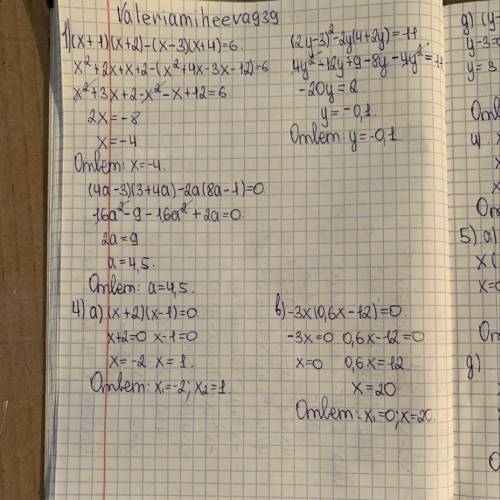 Valeriamiheeva939
1) (x+1)(x+2)-(x-3)(x+4)=6
x²+2x+x+2-(x²+4x-3x-12)=6
x²+3x+2-x²-x+12=6
2x=-8
x=-4
Ответ: x=-4.
(4a-3)(3+4a)-2a(8a-1)=0
16a²-9-16a²+2a=0
2a=9
a=4,5.
Ответ: a=4,5.
4) a) (x+2)(x-1)=0
x+2=0 x-1=0
x=-2 x=1.
Ответ: x₁=-2; x₂=1.
(2y-3)²-2y(4+2y)=11
4y²-12y+9-8y-4y²=11
-20y=2
y=-0,1.
Ответ: y=-0,1
в) -3x(0,6x-12)=0.
-3x=0 0,6x-12=0
x=0 0,6x=12
x=20
Ответ: x₁=0; x=20.
g) (y
y-3=
y=3
От
x
x
От
5) a)
x(
x=0
От
g)
0